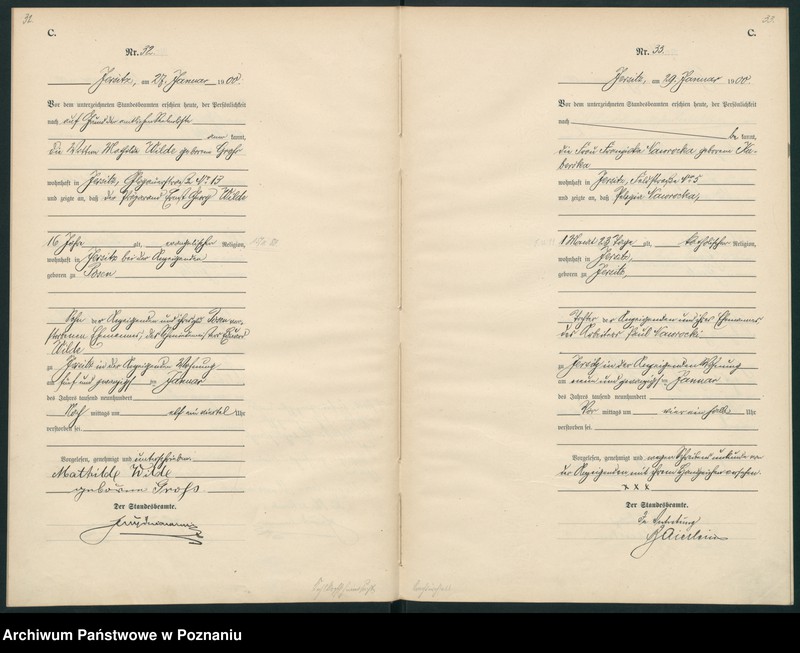 32.
C.
Nr. 32.
Jersitz, am 27. Januar 1900.
Vor dem unterzeichneten Standesbeamten erschien heute, der Persönlichkeit
nach auf Grund der
kannt,
die Wittwe Mathilde Wilde geborene Groß
wohnhaft in Jersitz,
und zeigte an, daß der Präparand Ernst Georg Wilde
16 Jahr alt, evangelischer Religion,
wohnhaft in Jersitz bei der Anzeigenden
geboren zu Posen
Sohn der Anzeigenden und ihres zu Posen ver-
storbenen Ehemannes, des
Wilde
zu Jersitz in der Anzeigenden Wohnung
am sieben und zwanzigsten Januar
des Jahres tausend neunhundert
Nach mittags um Uhr
verstorben sei.
Vorgelesen, genehmigt und unterschrieben
Mathilde Wilde
geborene Groß
Der Standesbeamte.
33.
C.
Nr. 33.
Jersitz, am 29. Januar 1900.
Vor dem unterzeichneten Standesbeamten erschien heute, der Persönlichkeit
nach
be kannt,
die Frau Franziska Nawrocka geborene
wohnhaft in Jersitz, Feldstraße № 5.
und zeigte an, daß Pelagia Nawrocka,
1 Monat 23 Tage alt, katholischer Religion,
wohnhaft in Jersitz,
geboren zu Jersitz,
Tochter der Anzeigenden und ihres Ehemannes,
des Arbeiters Paul Nawrocki
zu Jersitz in der Anzeigenden Wohnung
am neun und zwanzigsten Januar
des Jahres tausend neunhundert
Vor mittags um vier ein halb Uhr
verstorben sei.
Vorgelesen, genehmigt und wegen Schreibens unkunde von
der Anzeigenden mit ihrem Handzeichen versehen.
x x x
Der Standesbeamte.
In Vertretung
Archiwum Państwowe w Poznaniu